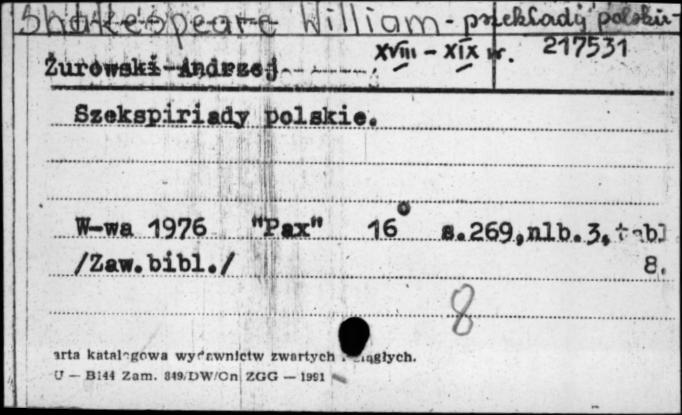 Shakespeare William - przekłady polskie
XVIII - XIX w. 217531
Żurowski Andrzej
Szekspiriady polskie.
W-wa 1976 "Pax" 16° s.269,nlb.3, tabl
/Zaw.bibl./ 8.
8
arta katalogowa wydawnictw zwartych i ciągłych.
U — B144 Zam. 849/DW/On ZGG — 1991